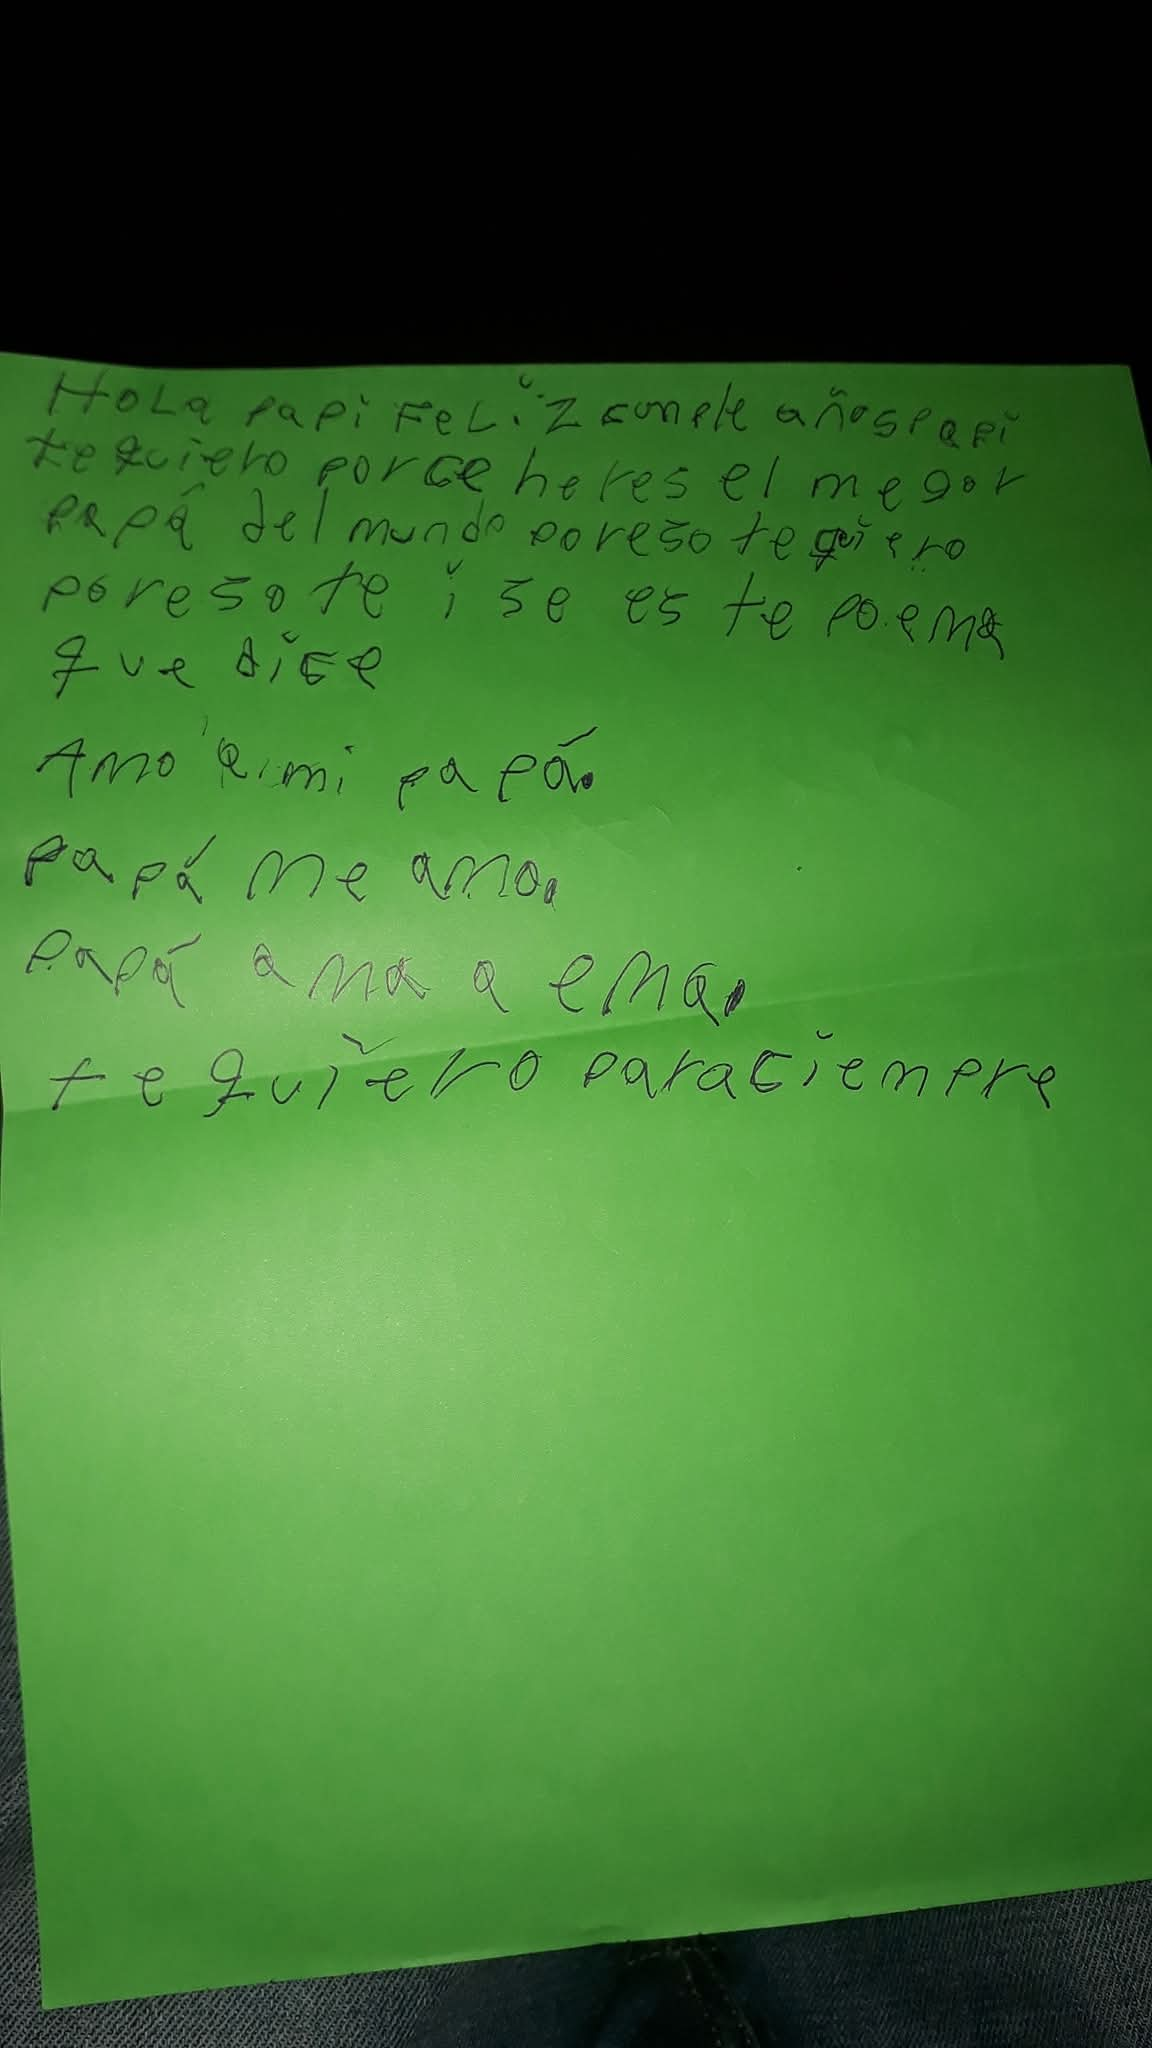 Hola papi Feliz cumple años papi
te quiero porce heres el megor
papá del mundo poreso te quiero
poreso te i se es te poema
que dice
Amo a mi papá.
papá me ama.
papá ama a ema.
te quiero paraciempre